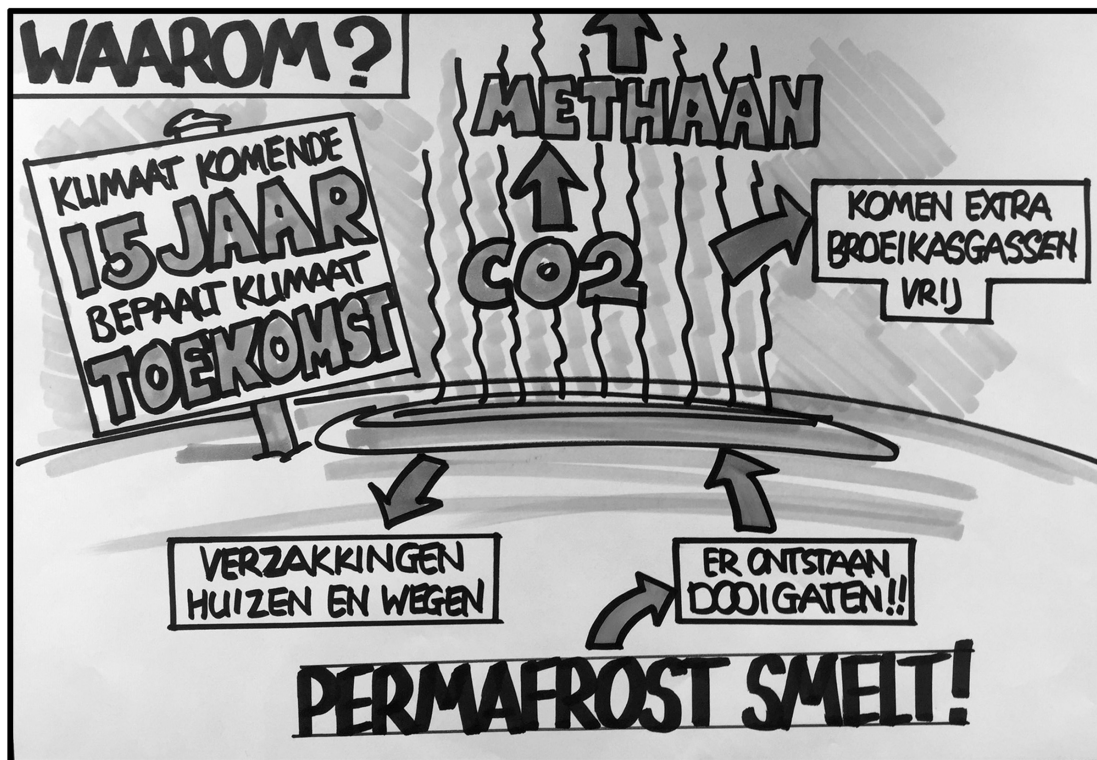 WAAROM?
KLIMAAT KOMENDE
15 JAAR
BEPAALT KLIMAAT
TOEKOMST
METHAAN
CO2
KOMEN EXTRA
BROEIKASGASSEN
VRIJ
VERZAKKINGEN
HUIZEN EN WEGEN
ER ONTSTAAN
DOOIGATEN!!
PERMAFROST SMELT!